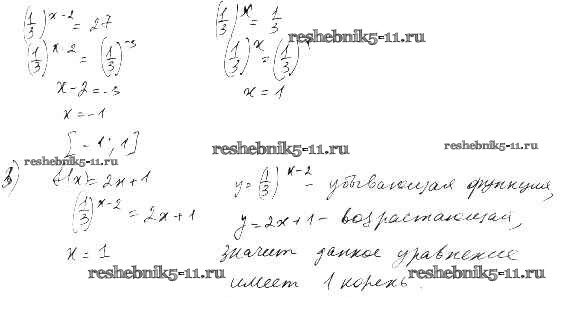 (1/3)^x-2 = 27
(1/3)^x-2 = (1/3)^-3
x-2 = -3
x = -1
[-1; 1]
(1/3)^x = 1/3
(1/3)^x = (1/3)^1
x = 1
reshebnik5-11.ru
reshebnik5-11.ru
reshebnik5-11.ru
reshebnik5-11.ru
f(x) = 2x+1
(1/3)^x-2 = 2x+1
x = 1
y = (1/3)^x-2 - убывающая функция,
y = 2x+1 - возрастающая,
значит данное уравнение
имеет 1 корень.
reshebnik5-11.ru
reshebnik5-11.ru